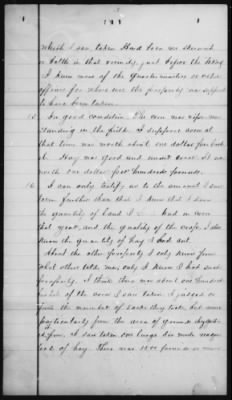 which I saw taken
a battle in that vicinity, just before the taking
I knew none of the Quartermasters or other
officers for whose use the property was supposed
to have been taken.
15 In good condition. The corn was ripe
standing in the field. I suppose corn at
that time was worth about one dollar per bushel
Hay was good and
worth one dollar per hundred pounds.
16 I can only testify as to the amount I saw
taken further than that I know that I knew
the quantity of land I had in corn
that year, and the quality of the crop. I also
know the quantity of hay I had out.
About the other property I only know from
what others told me, only I know I had such
property. I think there was about one hundred
of the corn I saw taken. I judged so
from the number of sacks they took, but more
particularly from the area of ground
I saw taken one large six mule wagon
load of hay. There was 1500 pounds or more